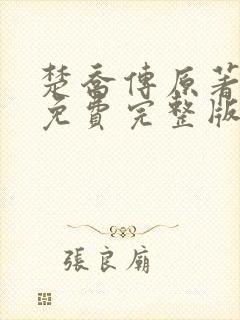 楚喬傳原著
免費完整版
張良廟